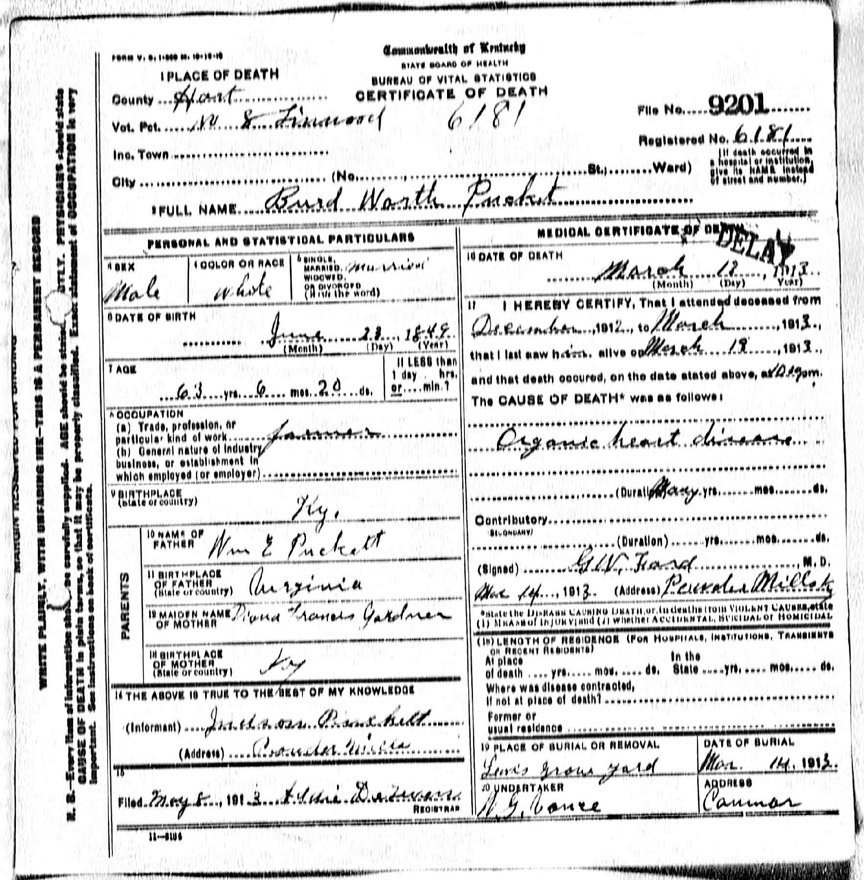 FORM V. S. 1-
Commonwealth of Kentucky
STATE BOARD OF HEALTH
BUREAU OF VITAL STATISTICS
CERTIFICATE OF DEATH
1 PLACE OF DEATH
County Hart
Vot. Pct. No 8 Linwood 6181
File No. 9201
Registered No. 6181
Inc. Town
(If death occurred in a hospital or institution, give its NAME instead of street and number.)
City (No. St.; Ward)
2 FULL NAME Burd Worth Pucket
PERSONAL AND STATISTICAL PARTICULARS
3 SEX Male
4 COLOR OR RACE White
5 SINGLE, MARRIED, WIDOWED, OR DIVORCED (Write the word) Married
6 DATE OF BIRTH
June 23 1849
(Month) (Day) (Year)
7 AGE
63 yrs. 6 mos. 20 ds.
If LESS than 1 day - hrs. or min.?
8 OCCUPATION
(a) Trade, profession, or particular kind of work farmer
(b) General nature of industry business, or establishment in which employed (or employer)
9 BIRTHPLACE
(State or country) Ky.
PARENTS
10 NAME OF FATHER Wm E Puckett
11 BIRTHPLACE OF FATHER (State or country) Virginia
12 MAIDEN NAME OF MOTHER Diona Francis Gardner
13 BIRTHPLACE OF MOTHER (State or country) Ky
14 THE ABOVE IS TRUE TO THE BEST OF MY KNOWLEDGE
(Informant) Judson Puckett
(Address) Powder Mills
15
Filed May 8, 1913
REGISTRAR
11-3184
MEDICAL CERTIFICATE OF DEATH
DELAY
16 DATE OF DEATH
March 12, 1913
(Month) (Day) (Year)
17 I HEREBY CERTIFY, That I attended deceased from
December, 1912, to March, 1913,
that I last saw him alive on March 12, 1913,
and that death occured, on the date stated above, at m.
The CAUSE OF DEATH* was as follows:
Organic heart disease
(Duration) Many yrs. mos. ds.
Contributory
SECONDARY
(Duration) yrs. mos. ds.
(Signed) G.W. Ford, M. D.
Mar 14, 1913. (Address) Powder Mills Ky
*State the DISEASE CAUSING DEATH, or, in deaths from VIOLENT CAUSES, state
(1) MEANS OF INJURY; and (2) whether ACCIDENTAL, SUICIDAL or HOMICIDAL
(18) LENGTH OF RESIDENCE (FOR HOSPITALS, INSTITUTIONS, TRANSIENTS OR RECENT RESIDENTS)
At place of death yrs. mos. ds. In the State yrs. mos. ds.
Where was disease contracted,
if not at place of death?
Former or
usual residence
19 PLACE OF BURIAL OR REMOVAL
Lewis grave yard
DATE OF BURIAL
Mar 14, 1913.
20 UNDERTAKER
W.G. Vance
ADDRESS
Canmer
MARGIN RESERVED FOR BINDING
WRITE PLAINLY, WITH UNFADING INK—THIS IS A PERMANENT RECORD
N. B.—Every item of information should be carefully supplied. AGE should be stated PHYSICIANS should state
CAUSE OF DEATH in plain terms, so that it may be properly classified. Exact statement of OCCUPATION is very
important. See instructions on back of certificate.